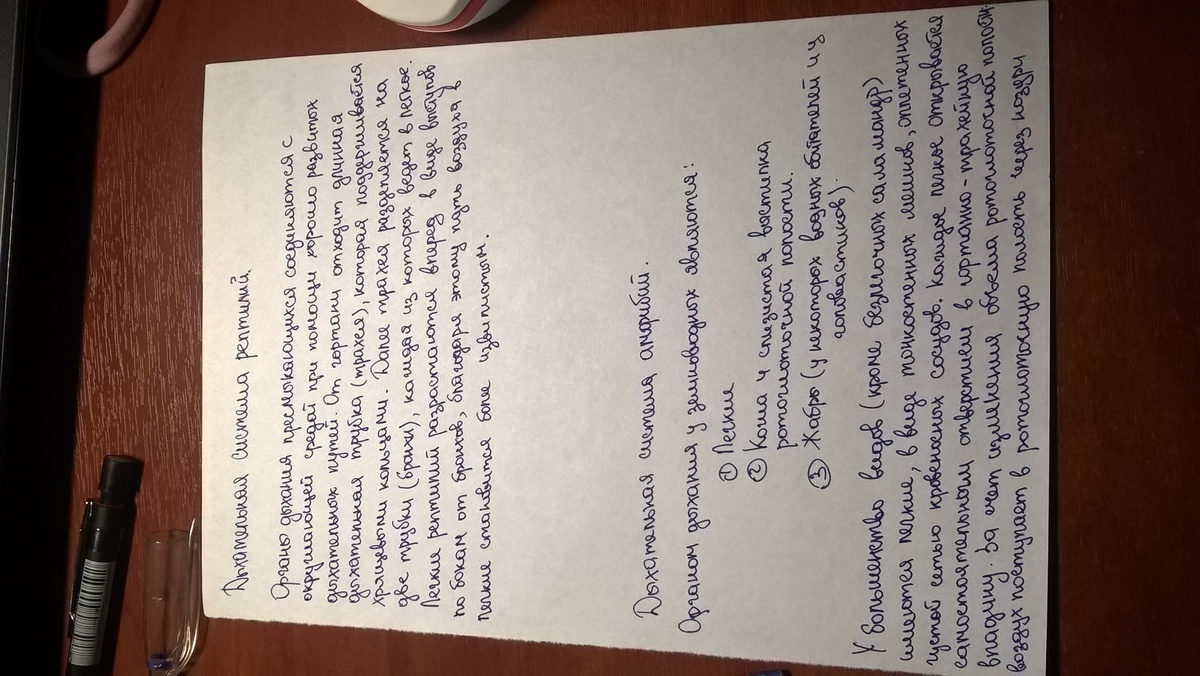 Дыхательная система рептилий.
Органы дыхания пресмыкающихся соединяются с
окружающей средой при помощи хорошо развитых
дыхательных путей. От гортани отходит длинная
дыхательная трубка (трахея), которая поддерживается
хрящевыми кольцами. Далее трахея разделяется на
две трубки (бронхи), каждая из которых ведет в легкое.
Легкие рептилий разрастаются вперед в виде выступов
по бокам от бронхов, благодаря этому путь воздуха в
легкие становится более извилистым.
Дыхательная система амфибий.
Органом дыхания у земноводных являются:
① Легкие
② Кожа и слизистая выстилка
ротоглоточной полости.
③ Жабры (у некоторых водных обитателей и у
головастиков).
У большенство видов (кроме безлегочных саламандр)
имеются легкие, в виде тонкостенных мешков, оплетенных
густой сетью кровеносных сосудов. Каждое легкое открывается
самостоятельным отверстием в гортанно-трахейную
впадину. За счет изменения объема ротоглоточной полости
воздух поступает в ротоглоточную полость через ноздри